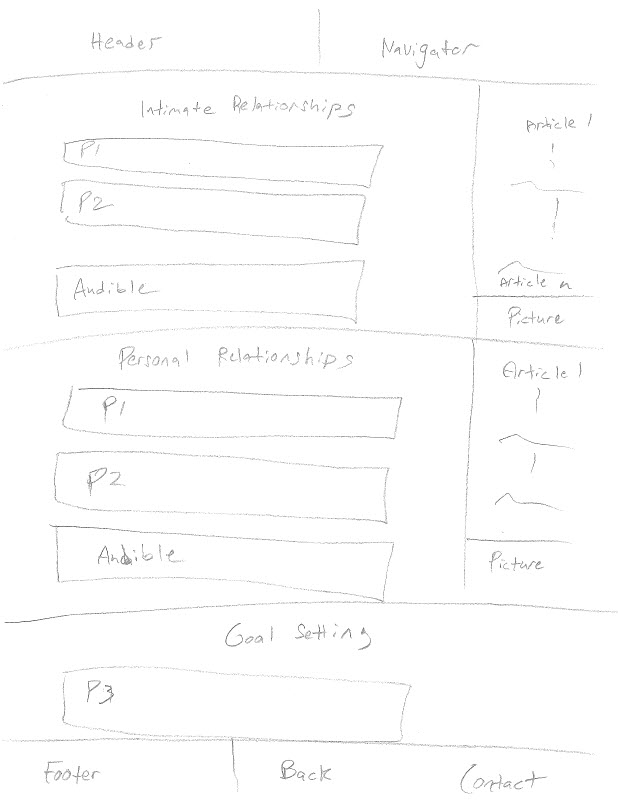 Header
Navigator
Intimate Relationships
P1
P2
Audible
Article 1
Article n
Picture
Personal Relationships
P1
P2
Audible
Article 1
Picture
Goal Setting
P3
Footer
Back
Contact